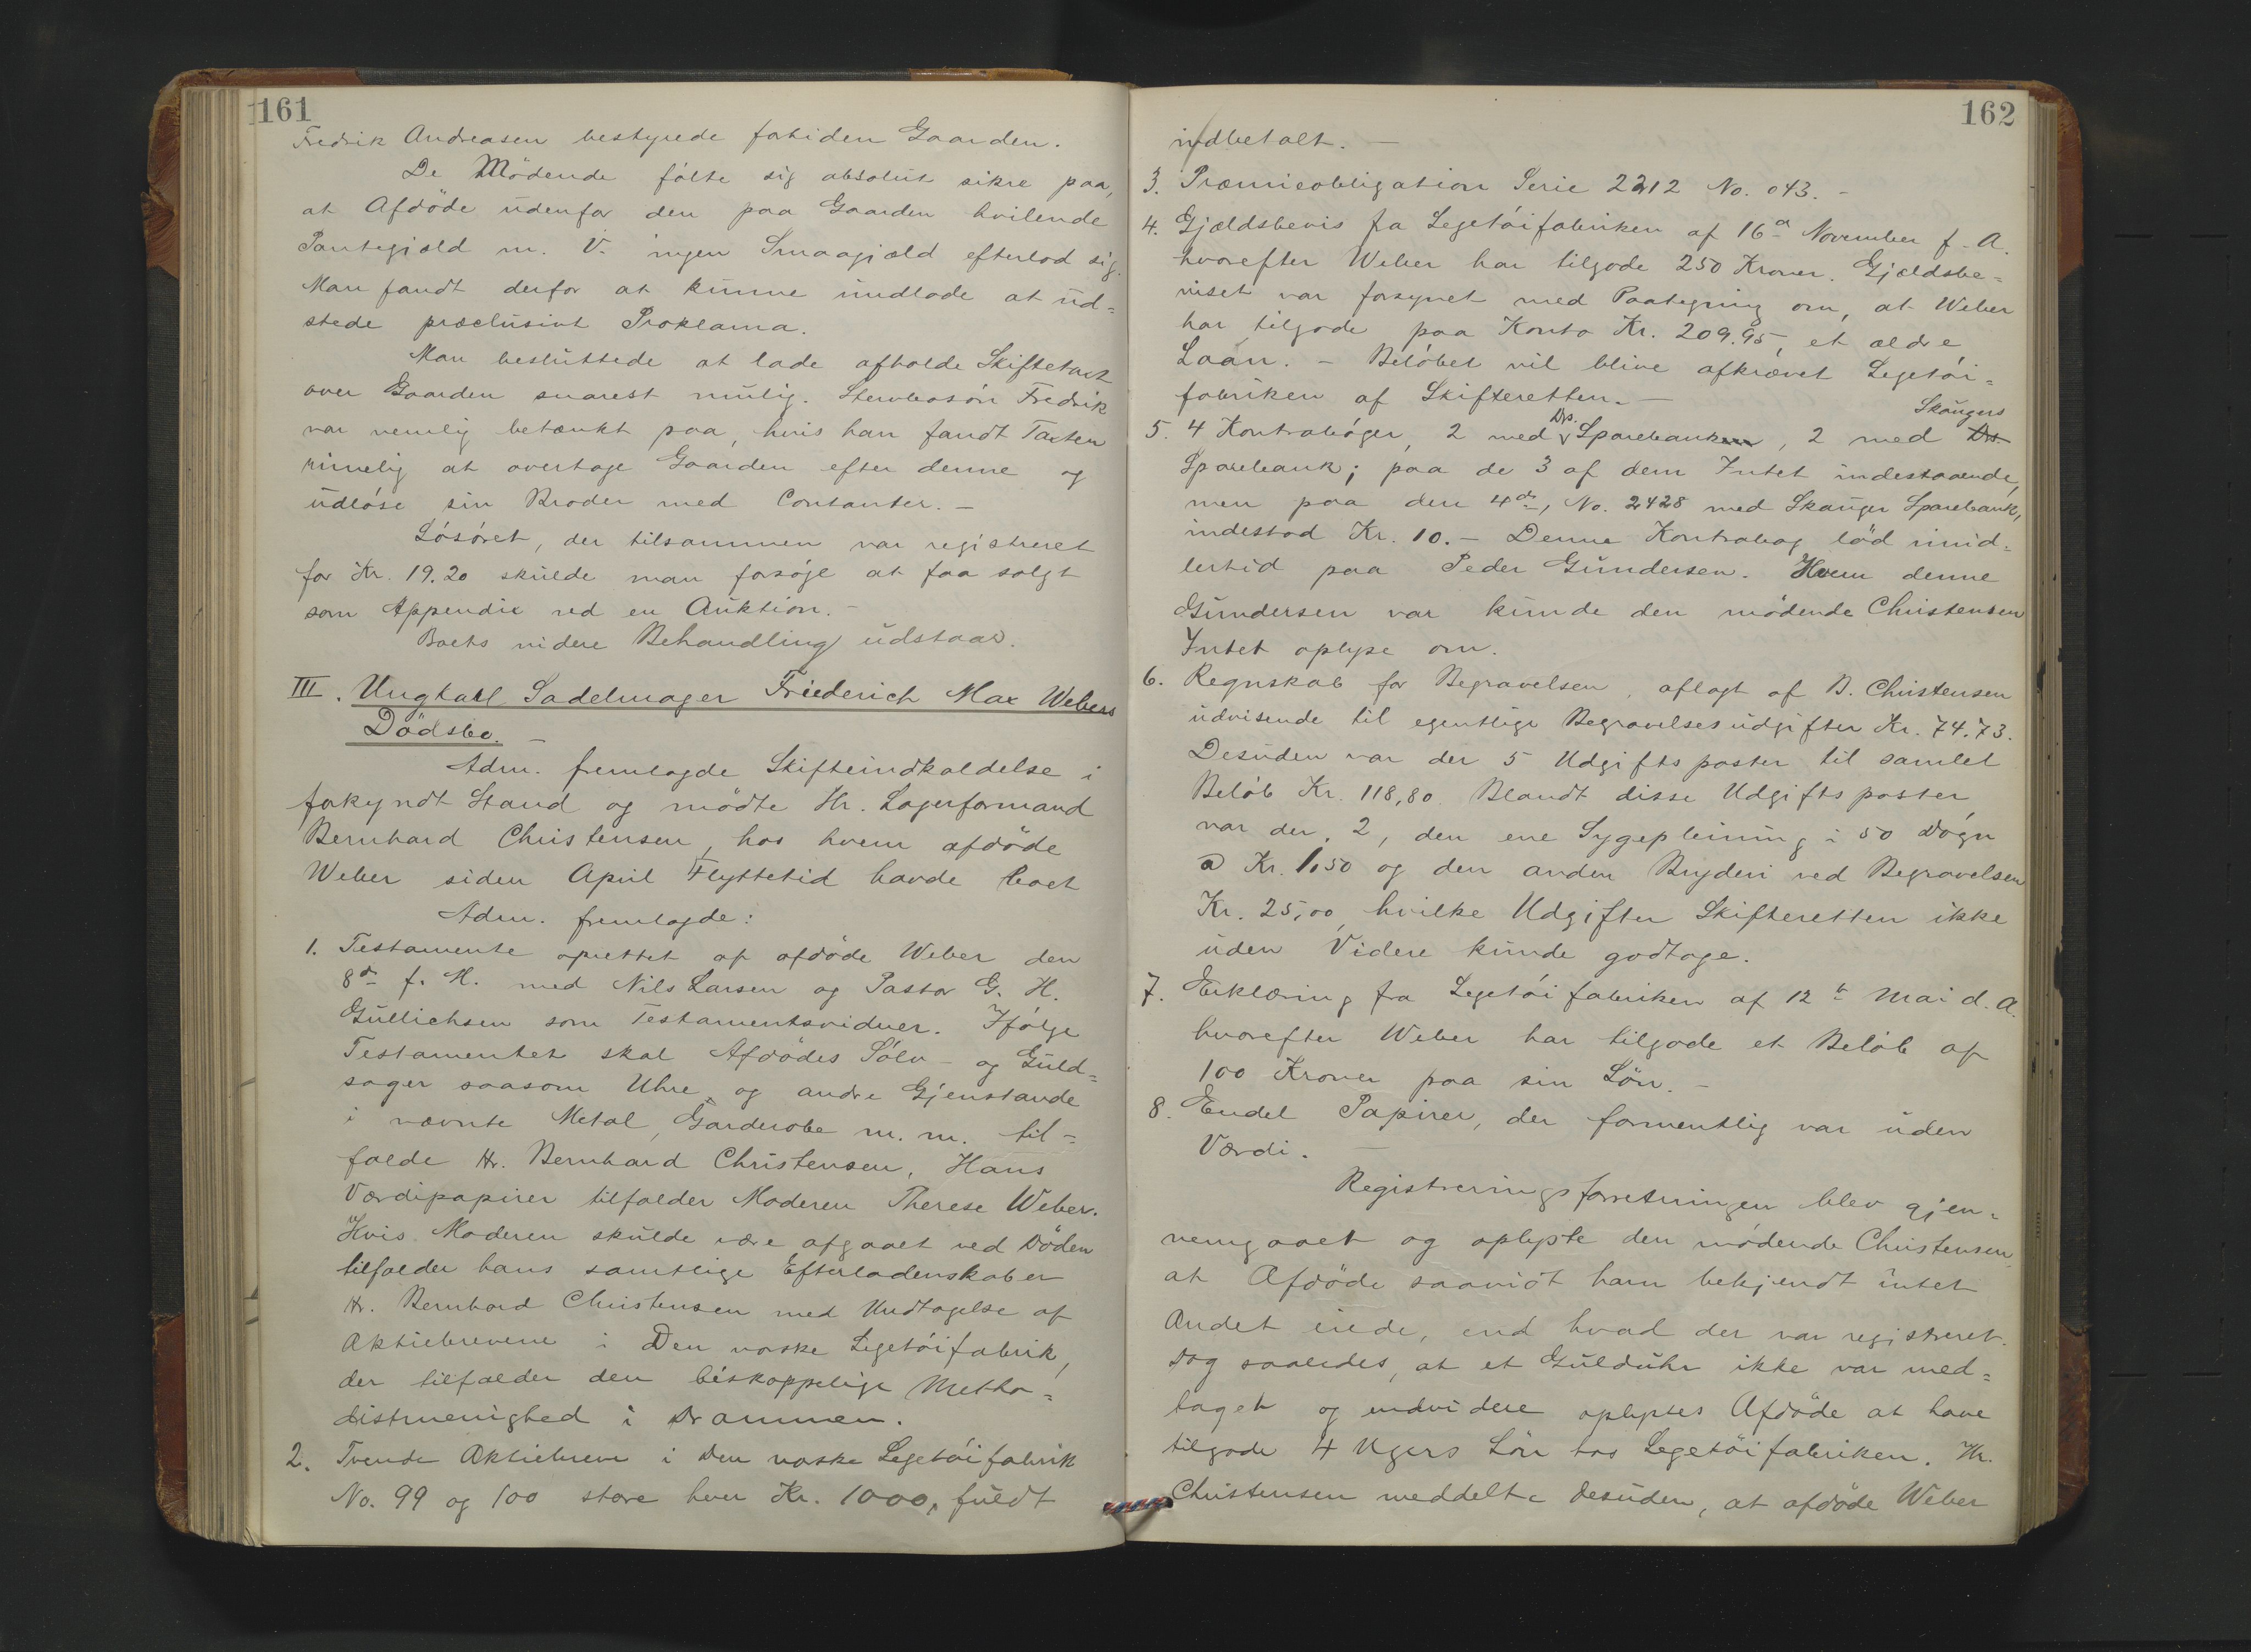 161
Fredrik Andreasen bestyrede fortiden Gaarden.
De Mödende fölte sig absolut sikre paa,
at Afdöde udenfor den paa Gaarden hvilende
Pantegjæld m. V. ingen Smaagjæld efterlod sig.
Man fandt derfor at kunne undlade at ud=
stede præclusivt Proklama.
Man besluttede at lade afholde Skiftetaxt
over Gaarden snarest mulig. Stervbosön Fredrik
var nemlig betænkt paa, hvis han fandt Taxten
rimelig at overtage Gaarden efter denne og
udløse sin Broder med Contanter. –
Løsøret, der tilsammen var registreret
for Kr. 19.20 skulde man forsøge at faa solgt
som Appendix ved en Auktion. –
Boets videre Behandling udstaar.
III. Ungkarl Sadelmager Friederich Max Webers
Dödsbo. –
Adm. fremlagde Skifteindkaldelse i
forkyndt Stand og mödte Hr. Lagerformand
Bernhard Christensen, hos hvem afdöde
Weber siden April Flyttetid havde boet
Adm. fremlagde:
1. Testamente oprettet af afdöde Weber den
8de f. M. med Nils Larsen og Pastor G. H.
Gullichsen som Testamentsvidner. Ifølge
Testamentet skal Afdödes Sölv- og Guld=
sager saasom Uhre og andre Gjenstande
i nævnte Metal, Garderobe m. m. til=
falde Hr. Bernhard Christensen, Hans
Værdipapirer tilfalder Moderen Therese Weber.
Hvis Moderen skulde være afgaaet ved Döden
tilfalder hans samtlige Efterladenskaber
Hr. Bernhard Christensen med Undtagelse af
Aktiebrevene i Den norske Legetöifabrik,
der tilfalder den biskoppelige Metho=
distmenighed i Drammen.
2. Tvende Aktiebreve i Den norske Legetöifabrik
No. 99 og 100 store hver Kr. 1000, fuldt
162
indbetalt. –
3. Præmieobligation Serie 2212 No. 043. –
4. Gjældsbevis fra Legetöifabriken af 16de November f. A.
hvorefter Weber har tilgode 250 Kroner. Gjældsbe=
viset var forsynet med Paategning om, at Weber
har tilgode paa Konto Kr. 209.95, et ældre
Laan. – Belöbet vil blive afkrævet Legetöi=
fabriken af Skifteretten. –
5. 4 Kontrabøger, 2 med Drs. Sparebanken, 2 med Drs Skaugers
Sparebank; paa de 3 af dem Intet indestaaende,
men paa den 4de, No. 2428 med Skauger Sparebank,
indestod Kr. 10. – Denne Kontrabog löd imid=
lertid paa Peder Gundersen. Hvem denne
Gundersen var kunde den mödende Christensen
Intet oplyse om.
6. Regnskab for Begravelsen, aflagt af B. Christensen
udvisende til egentlige Begravelsesudgifter Kr. 74.73.
Desuden var der 5 Udgiftsposter til samlet
Belöb Kr. 118,80. Blandt disse Udgiftsposter
var der 2, den ene Sygepleining i 50 Dögn
a Kr. 1,50 og den anden Bryderi ved Begravelsen
Kr. 25,00, hvilke Udgifter Skifteretten ikke
uden Videre kunde godtage.
7. Erklæring fra Legetöifabriken af 12te Mai d. A.
hvorefter Weber har tilgode et Belöb af
100 Kroner paa sin Lön. –
8. Endel Papirer, der formentlig var uden
Værdi. –
Registreringsforretningen blev gjen=
nemgaaet og oplyste den mödende Christensen
at Afdöde saavidt ham bekjendt intet
Andet eiede, end hvad der var registreret.
Dog saaledes, at et Gulduhr ikke var med=
taget og endvidere oplystes Afdöde at have
tilgode 4 Ugers Lön hos Legetöifabriken. Hr.
Christensen meddelte desuden, at afdöde Weber